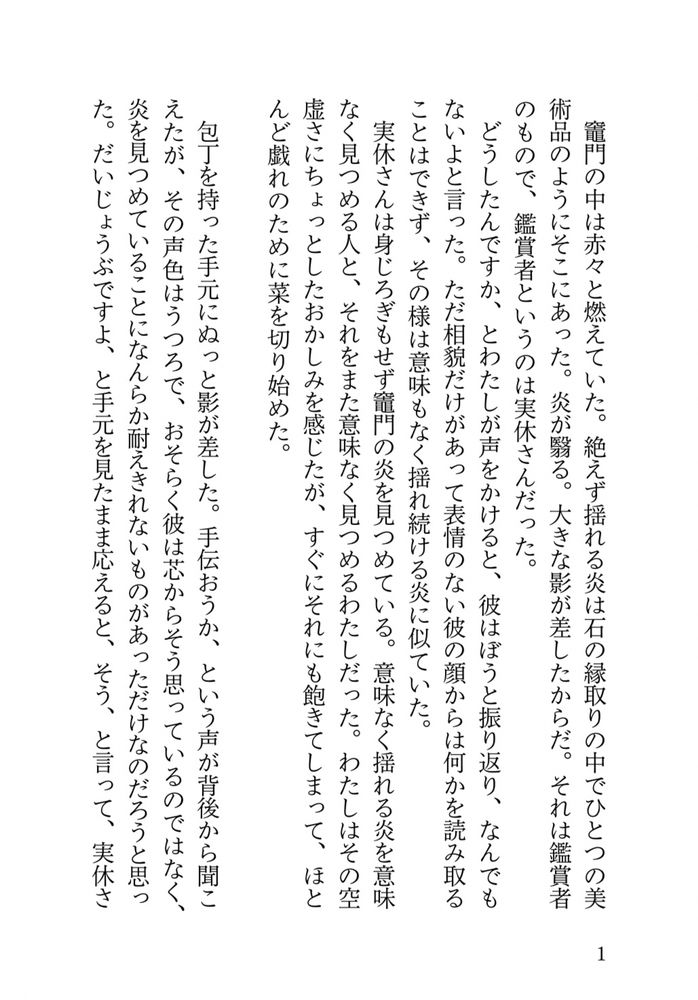 竈門の中は赤々と燃えていた。絶えず揺れる炎は石の縁取りの中でひとつの美
術品のようにそこにあった。炎が翳る。大きな影が差したからだ。それは鑑賞者
のもので、鑑賞者というのは実休さんだった。
どうしたんですか、とわたしが声をかけると、彼はぼうと振り返り、なんでも
ないよと言った。ただ相貌だけがあって表情のない彼の顔からは何かを読み取る
ことはできず、その様は意味もなく揺れ続ける炎に似ていた。
実休さんは身じろぎもせず竈門の炎を見つめている。意味なく揺れる炎を意味
なく見つめる人と、それをまた意味なく見つめるわたしだった。わたしはその空
虚さにちょっとしたおかしみを感じたが、すぐにそれにも飽きてしまって、ほと
んど戯れのために菜を切り始めた。
包丁を持った手元にぬっと影が差した。手伝おうか、という声が背後から聞こ
えたが、その声色はうつろで、おそらく彼は芯からそう思っているのではなく、
炎を見つめていることになんらか耐えきれないものがあっただけなのだろうと思っ
た。だいじょうぶですよ、と手元を見たまま応えると、そう、と言って、実休さ
1